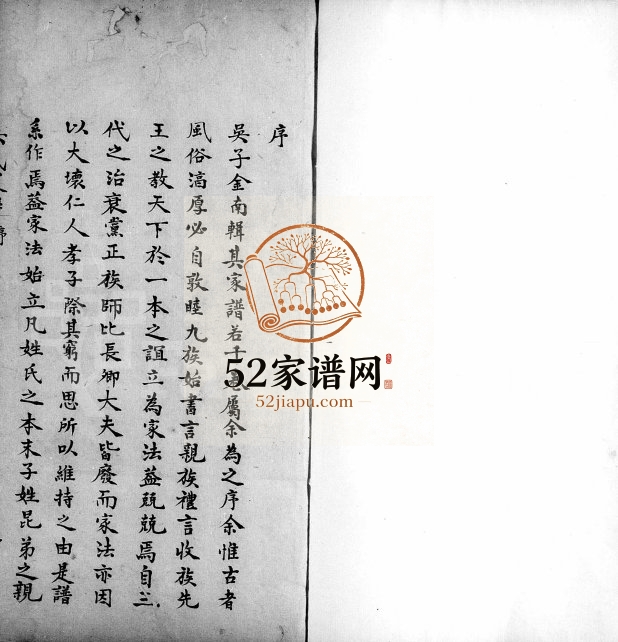 序
吳子金南輯其家譜若干屬余為之序余惟古者
風俗滈厚必自敦睦九族始書言親族禮言收族先
王之教天下於一本之誼立為家法益兢兢焉自三
代之治衰黨正族師比長鄉大夫皆廢而家法亦因
以大壞仁人孝子際其窮而思所以維持之由是譜
系作焉葢家法始立凡姓氏之本末子姓昆弟之親
52家谱网
52jiapu.com